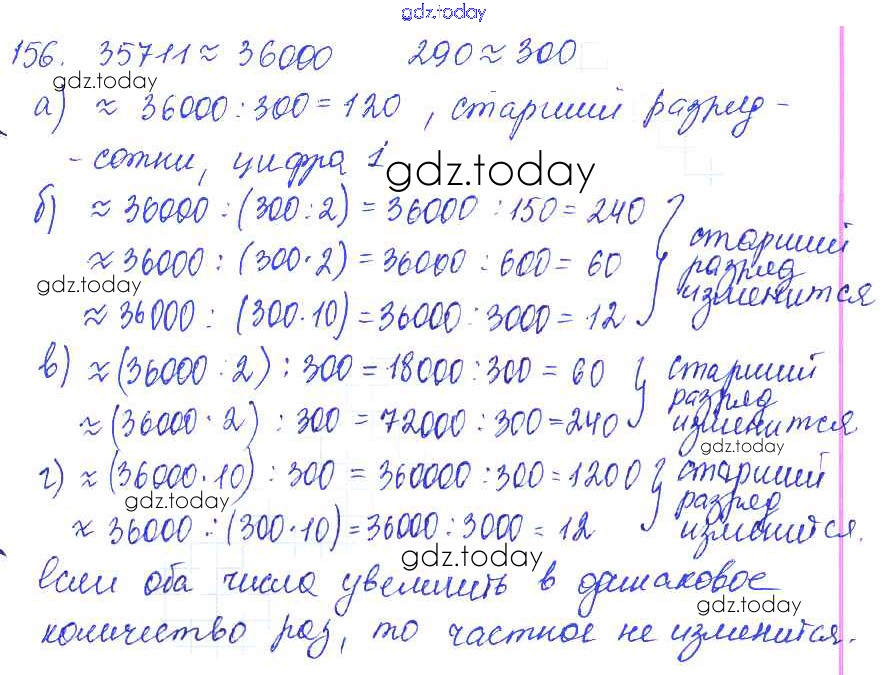 gdz.today
156. 35711 ≈ 36000 290 ≈ 300
gdz.today
а) ≈ 36000 : 300 = 120 , старший разряд -
- сотни, цифра 1
gdz.today
б) ≈ 36000 : (300 : 2) = 36000 : 150 = 240
≈ 36000 : (300 · 2) = 36000 : 600 = 60
gdz.today
≈ 36000 : (300 · 10) = 36000 : 3000 = 12
старший
разряд
изменится
в) ≈ (36000 : 2) : 300 = 18000 : 300 = 60
≈ (36000 · 2) : 300 = 72000 : 300 = 240
старший
разряд
изменится
gdz.today
г) ≈ (36000 · 10) : 300 = 360000 : 300 = 1200
gdz.today
≈ 36000 : (300 · 10) = 36000 : 3000 = 12
старший
разряд
изменится.
gdz.today
Если оба числа увеличить в одинаковое
gdz.today
количество раз, то частное не изменится.